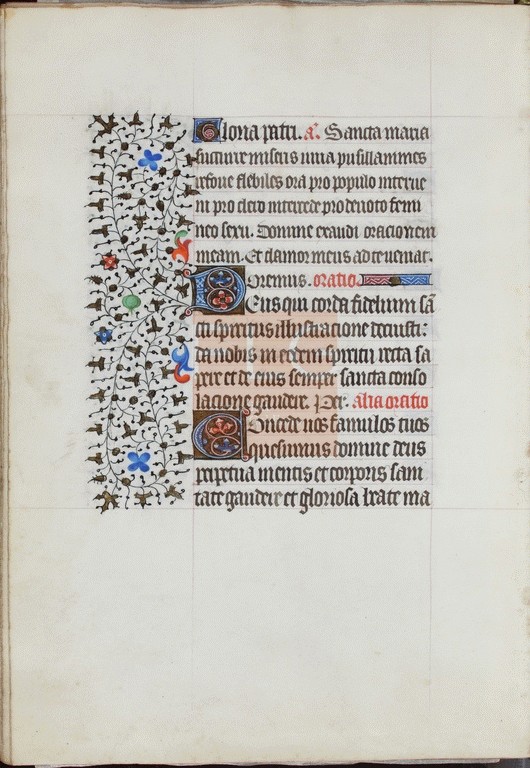 Gloria patri. a. Sancta maria
succurre miseris iuva pusillanimes
refove flebiles ora pro populo interve
ni pro clero intercede pro devoto femi
neo sexu. Domine exaudi orationem
meam. Et clamor meus ad te veniat.
Oremus. oratio
Deus qui corda fidelium sc̄
cti spiritus illustracione docuisti:
da nobis in eodem spiritu recta sa
pere et de eius semper sancta conso
lacione gaudere. Per. alia oratio
Concede nos famulos tuos
quesumus domine deus
perpetua mentis et corporis sani
tate gaudere et gloriosa beate ma